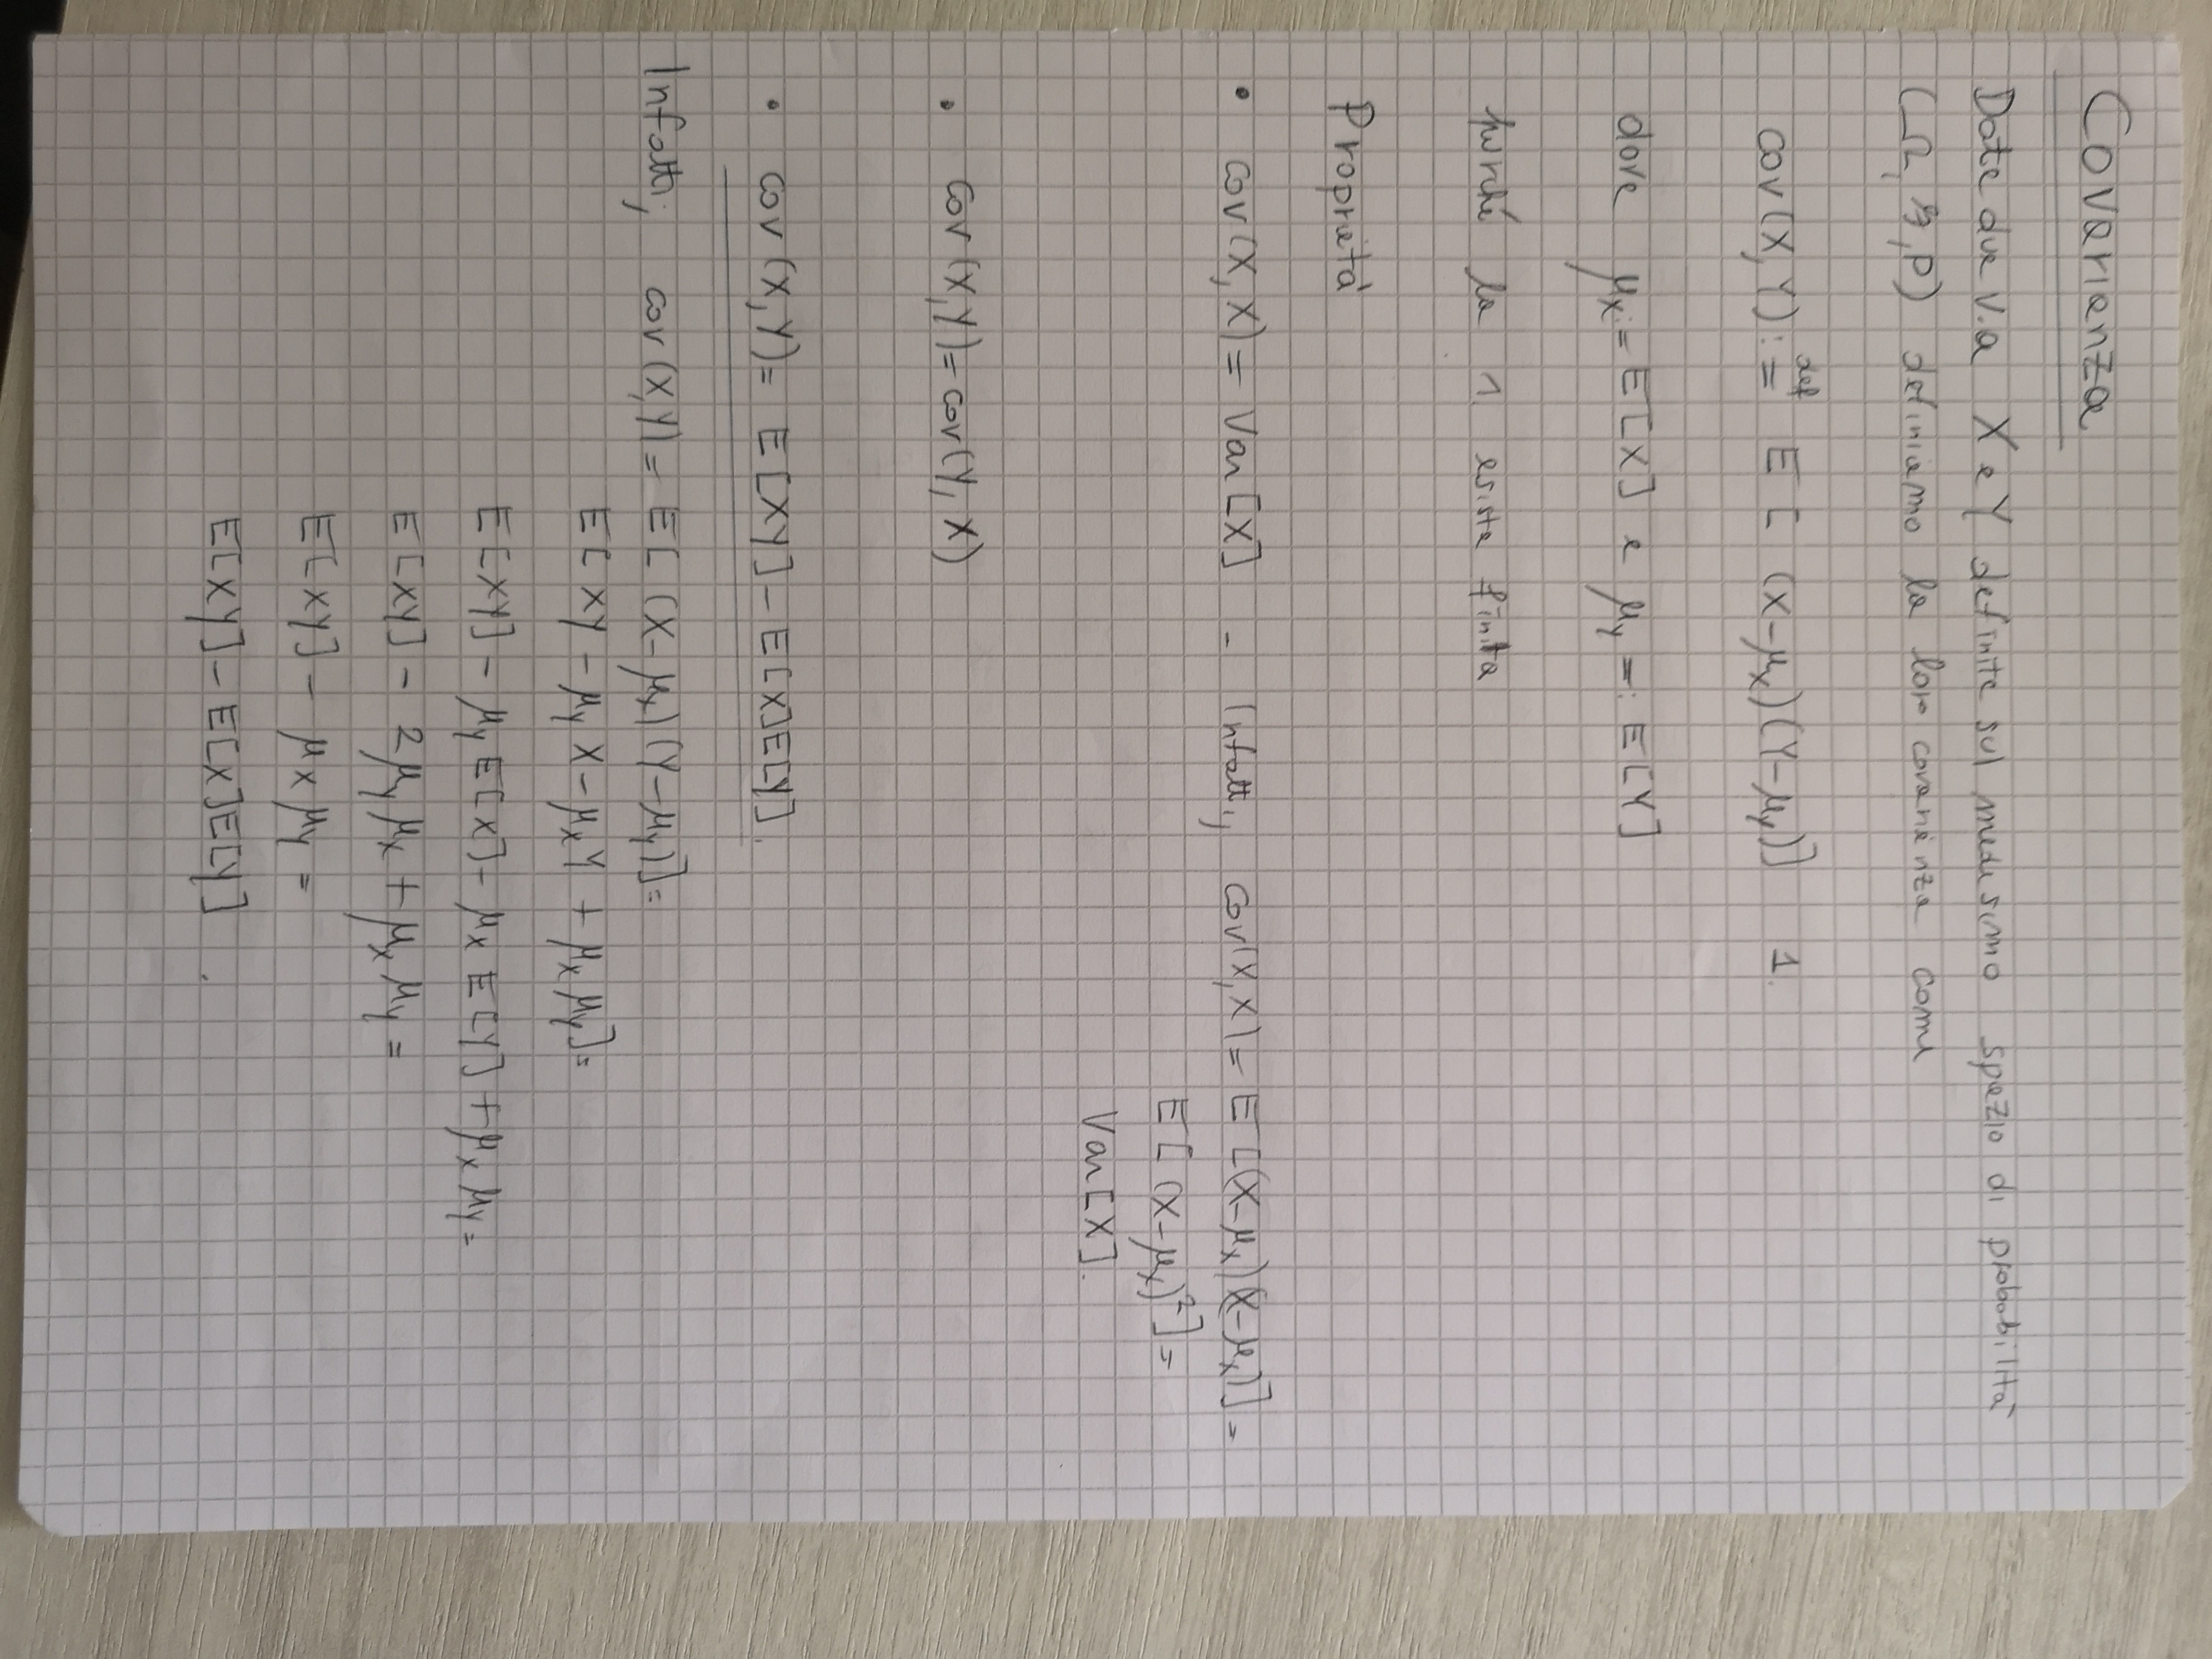 Covarianza
Date due v.a X e Y definite sul medesimo spazio di probabilità
(Ω, F, P) definiamo la loro covarianza come
cov(X,Y) :=^def E[(X-μ_X)(Y-μ_Y)] 1.
dove μ_X := E[X] e μ_Y =: E[Y]
purché la 1. esista finita
Proprietà
• cov(X,X) = Var[X] - Infatti, cov(X,X) = E[(X-μ_X)(X-μ_X)] =
E[(X-μ_X)²] =
Var[X].
• cov(X,Y) = cov(Y,X)
• cov(X,Y) = E[XY] - E[X]E[Y].
Infatti, cov(X,Y) = E[(X-μ_X)(Y-μ_Y)] =
E[XY - μ_Y X - μ_X Y + μ_X μ_Y] =
E[XY] - μ_Y E[X] - μ_X E[Y] + μ_X μ_Y =
E[XY] - 2μ_Y μ_X + μ_X μ_Y =
E[XY] - μ_X μ_Y =
E[XY] - E[X]E[Y] .